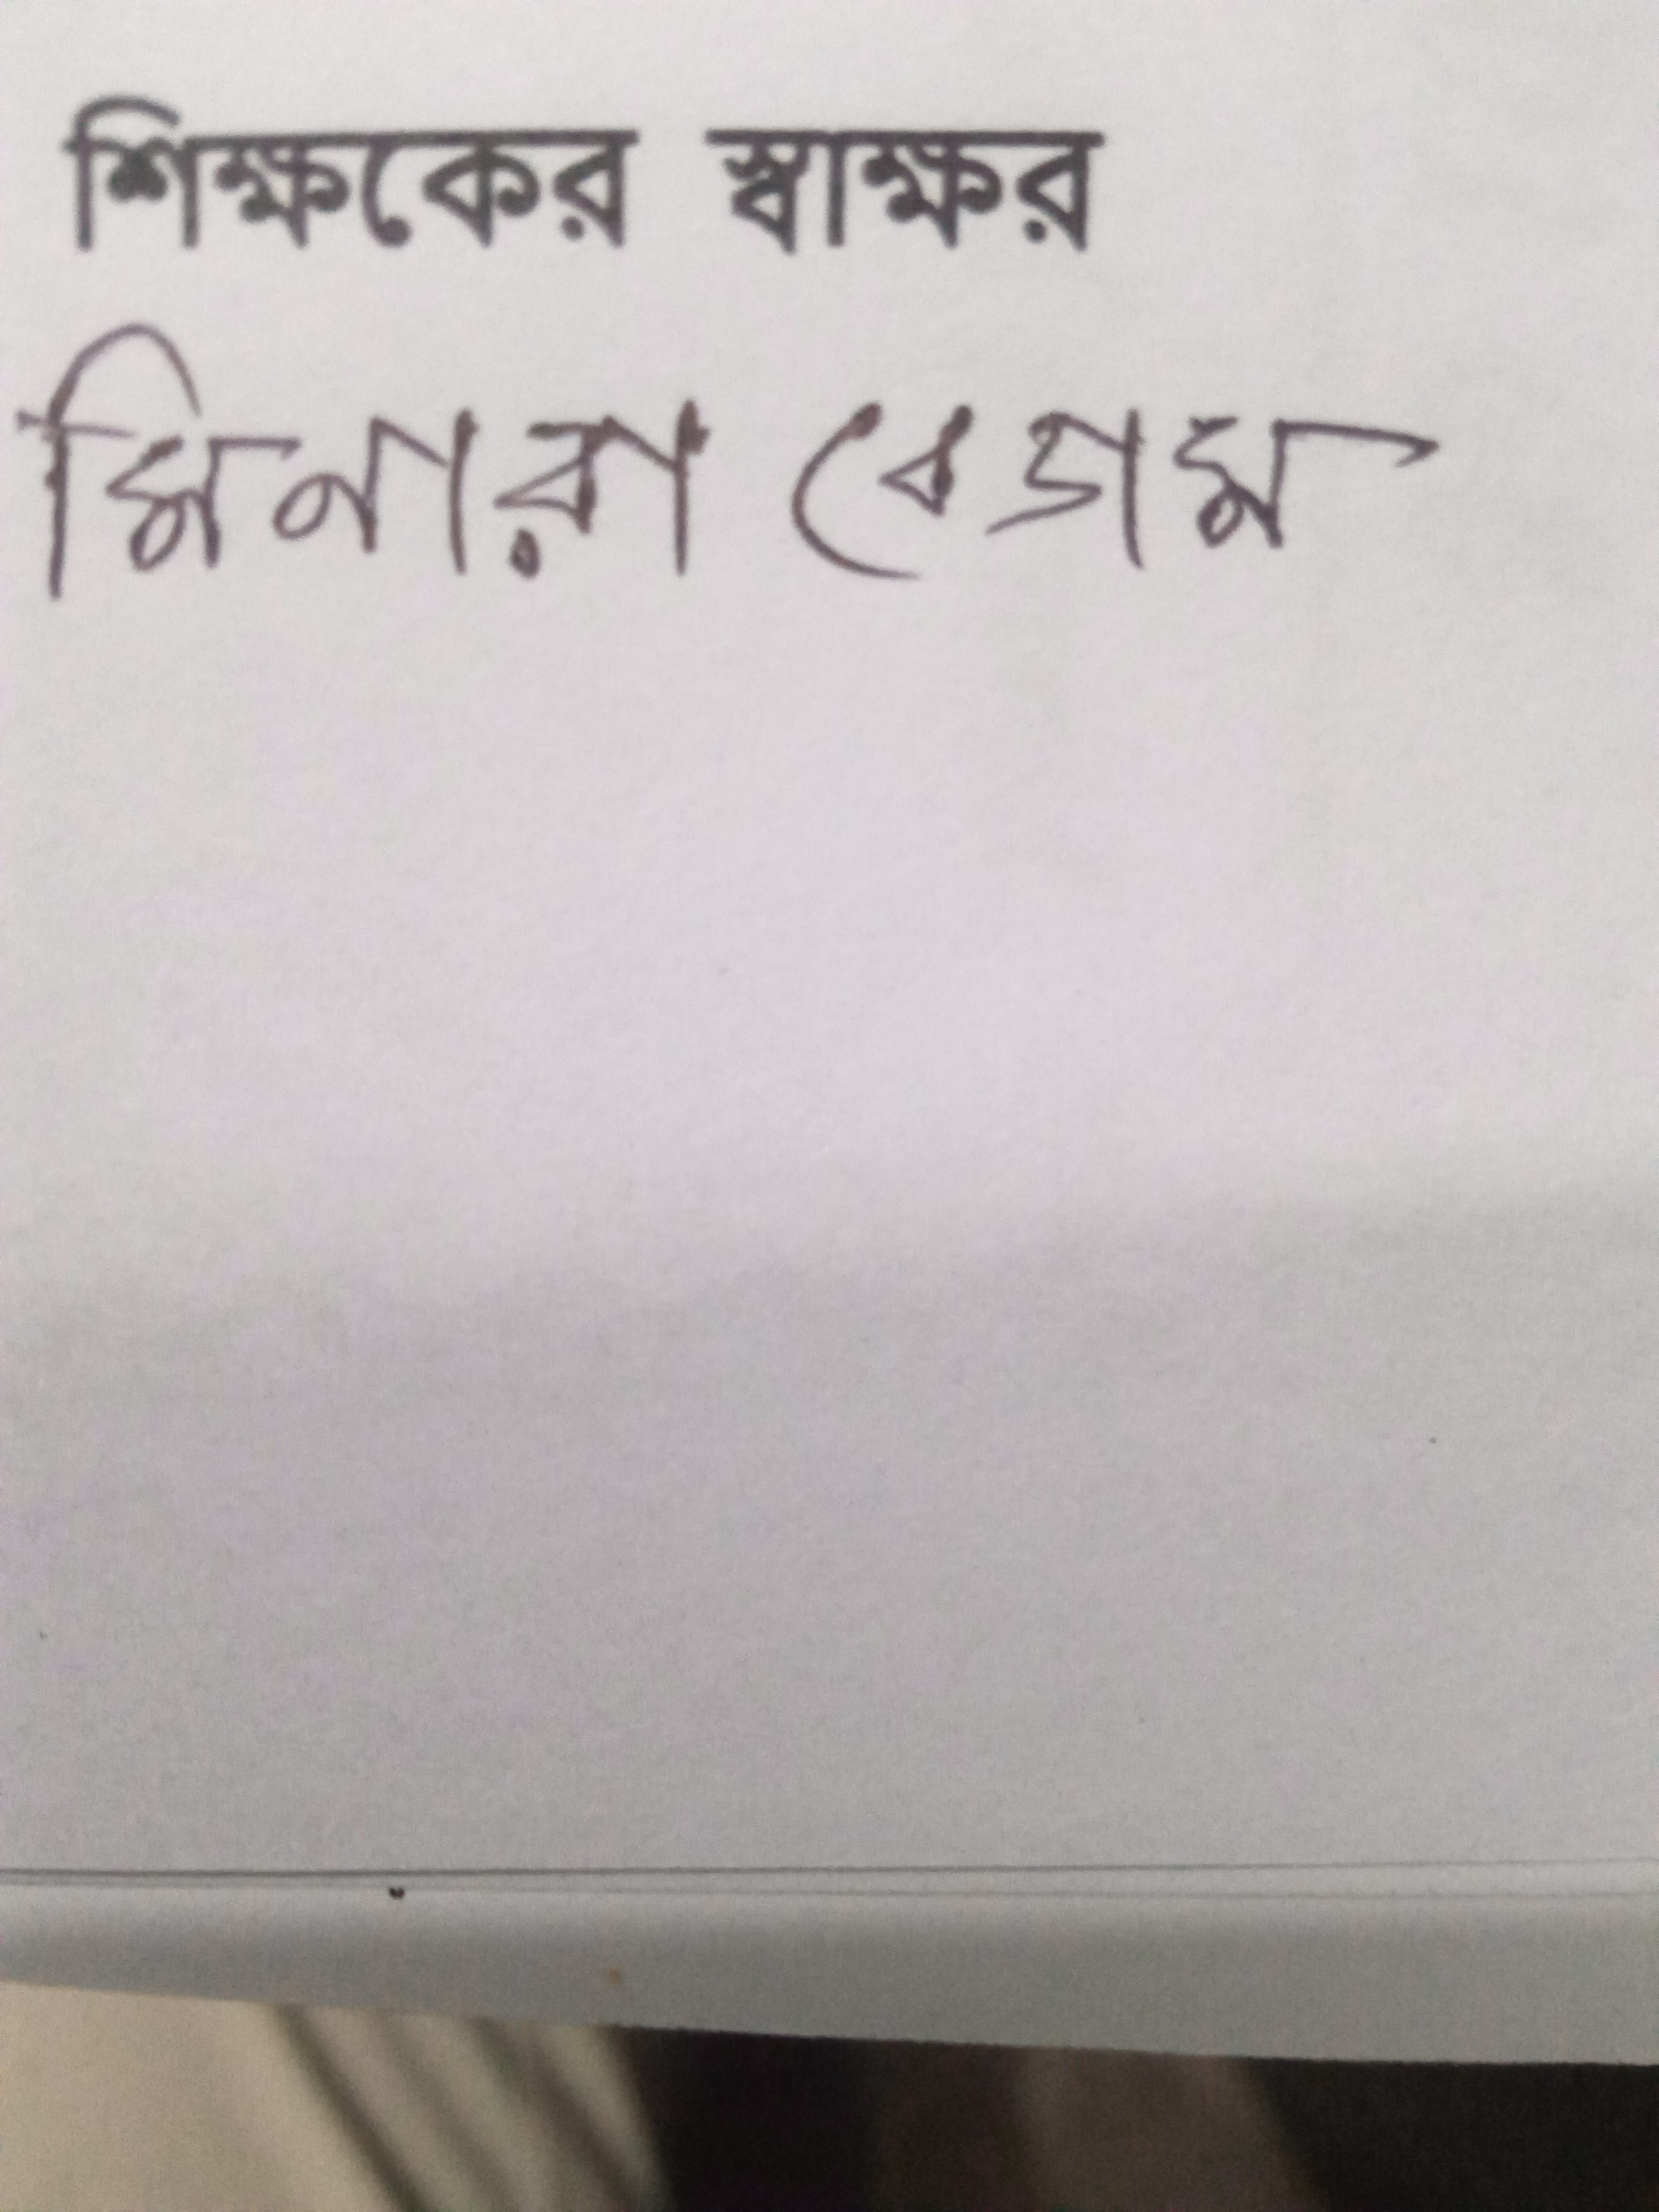 শিক্ষকের স্বাক্ষর
মিনারা বেগম